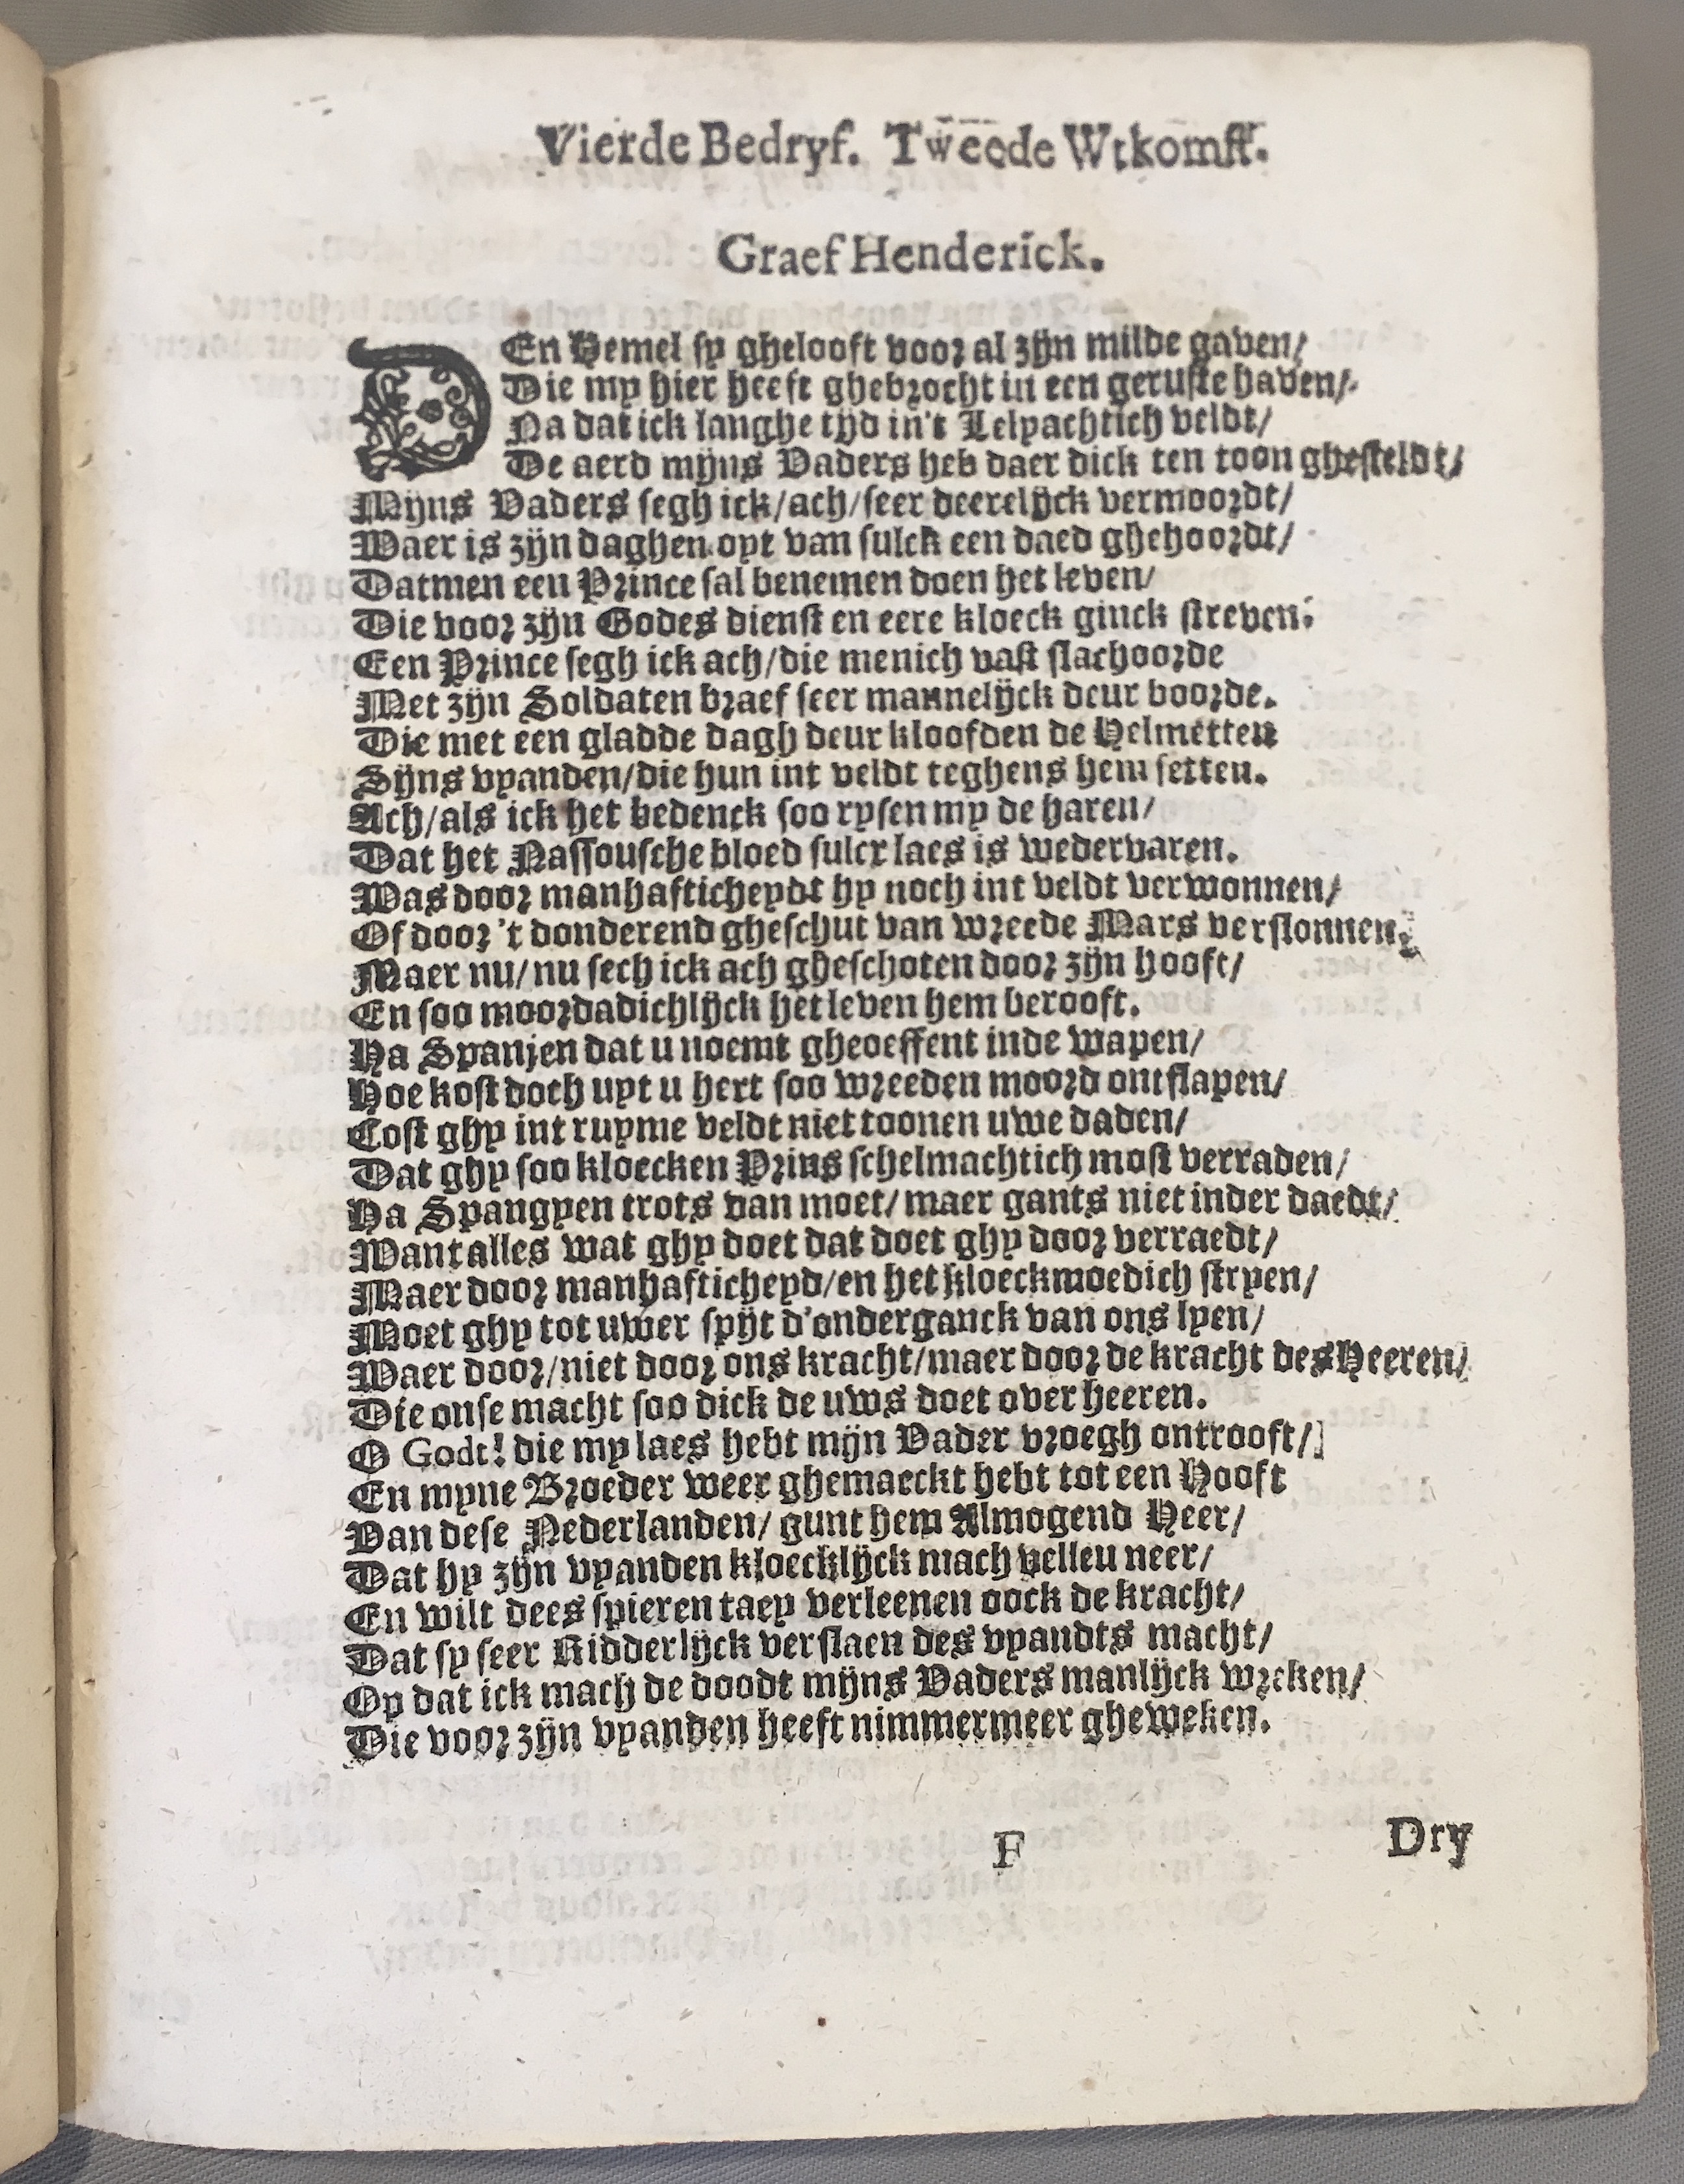 Vierde Bedryf. Tweede Wtkomst.
Graef Henderick.
DEn Hemel sy ghelooft voor al zijn milde gaven/
Die my hier heeft ghebrocht in een geruste haven/
Na dat ick langhe tijd in't Lelyachtich veldt/
De aerd mijns Vaders heb daer dick ten toon ghesteldt/
Mijns Vaders segh ick/ach/seer deerelijck vermoordt/
Waer is zijn daghen oyt van sulck een daed ghehoordt/
Datmen een Prince sal benemen doen het leven/
Die voor zijn Godes dienst en eere kloeck ginck streven.
Een Prince segh ick ach/die menich vast slachoorde
Met zijn Soldaten braef seer mannelijck deur boorde.
Die met een gladde dagh deur kloofden de Helmetten
Sijns vyanden/die hun int veldt teghens hem setten.
Ach/als ick het bedenck soo rysen my de haren/
Dat het Nassousche bloed sulcx laes is wedervaren.
Was door manhafticheydt hy noch int veldt verwonnen/
Of door 't donderend gheschut van wreede Mars verslonnen.
Maer nu/nu sech ick ach gheschoten door zijn hooft/
En soo moordadichlijck het leven hem berooft.
Ha Spanjen dat u noemt gheoeffent inde wapen/
Hoe kost doch uyt u hert soo wreeden moord ontslapen/
Cost ghy int ruyme veldt niet toonen uwe daden/
Dat ghy soo kloecken Prins schelmachtich most verraden/
Ha Spangyen trots van moet/maer gants niet inder daedt/
Want alles wat ghy doet dat doet ghy door verraedt/
Maer door manhafticheyd/en het kloeckmoedich stryen/
Moet ghy tot uwer spijt d'onderganck van ons lyen/
Waer door/niet door ons kracht/maer door de kracht des Heeren/
Die onse macht soo dick de uws doet over heeren.
O Godt! die my laes hebt mijn Vader vroegh ontrooft/]
En myne Broeder weer ghemaeckt hebt tot een Hooft
Van dese Nederlanden/ gunt hem Almogend Heer/
Dat hy zijn vyanden kloecklijck mach velleu neer/
En wilt dees spieren taey verleenen oock de kracht/
Dat sy seer Ridderlijck verslaen des vyandts macht/
Op dat ick mach de doodt mijns Vaders manlijck wreken/
Die voor zijn vyanden heeft nimmermeer gheweken.
F
Dry